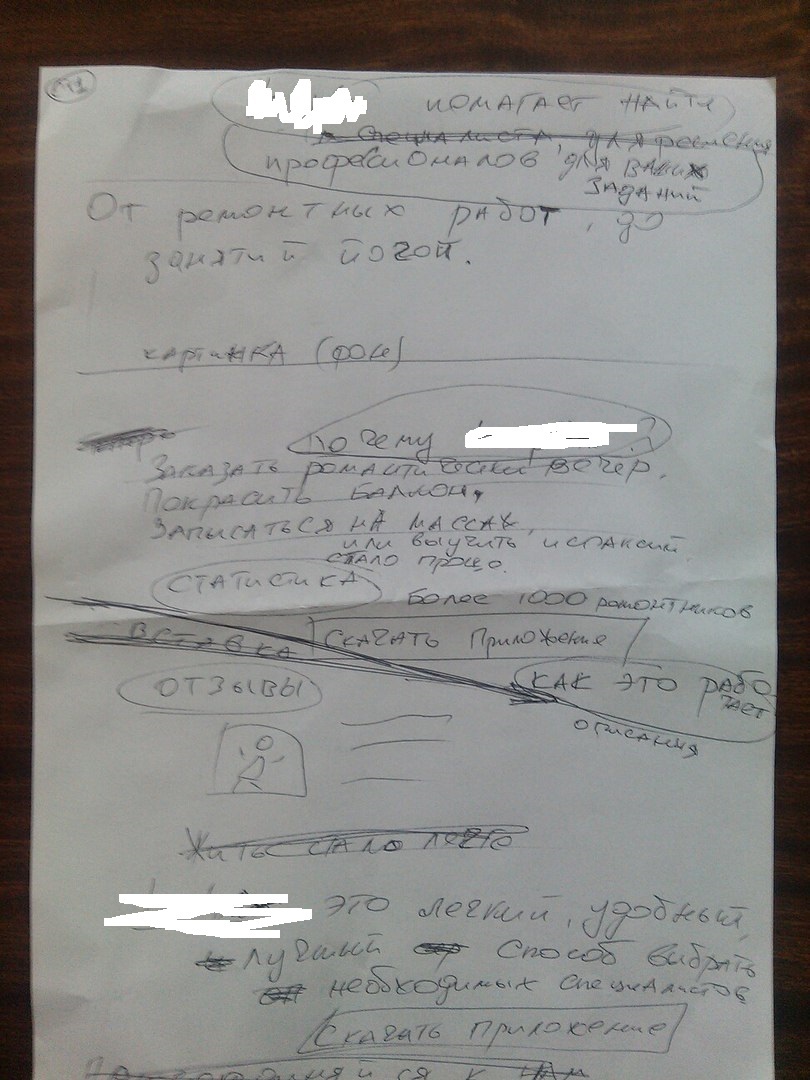 помагает найти
специалиста, для решения
професионалов для ваших
заданий
От ремонтных работ, до
занятий йогой.
картинка (фон)
Почему ?
Заказать романтически вечер,
Покрасить балкон,
Записаться на массаж,
или выучить испаский
стало прощо.
статистика
Более 1000 ремонтников
вставка
Скачать приложение
отзывы
как это рабо
тает
описания
Жить стало легко
это легкий, удобный,
лучший способ выбрать
необходимых специалистов
Скачать приложение